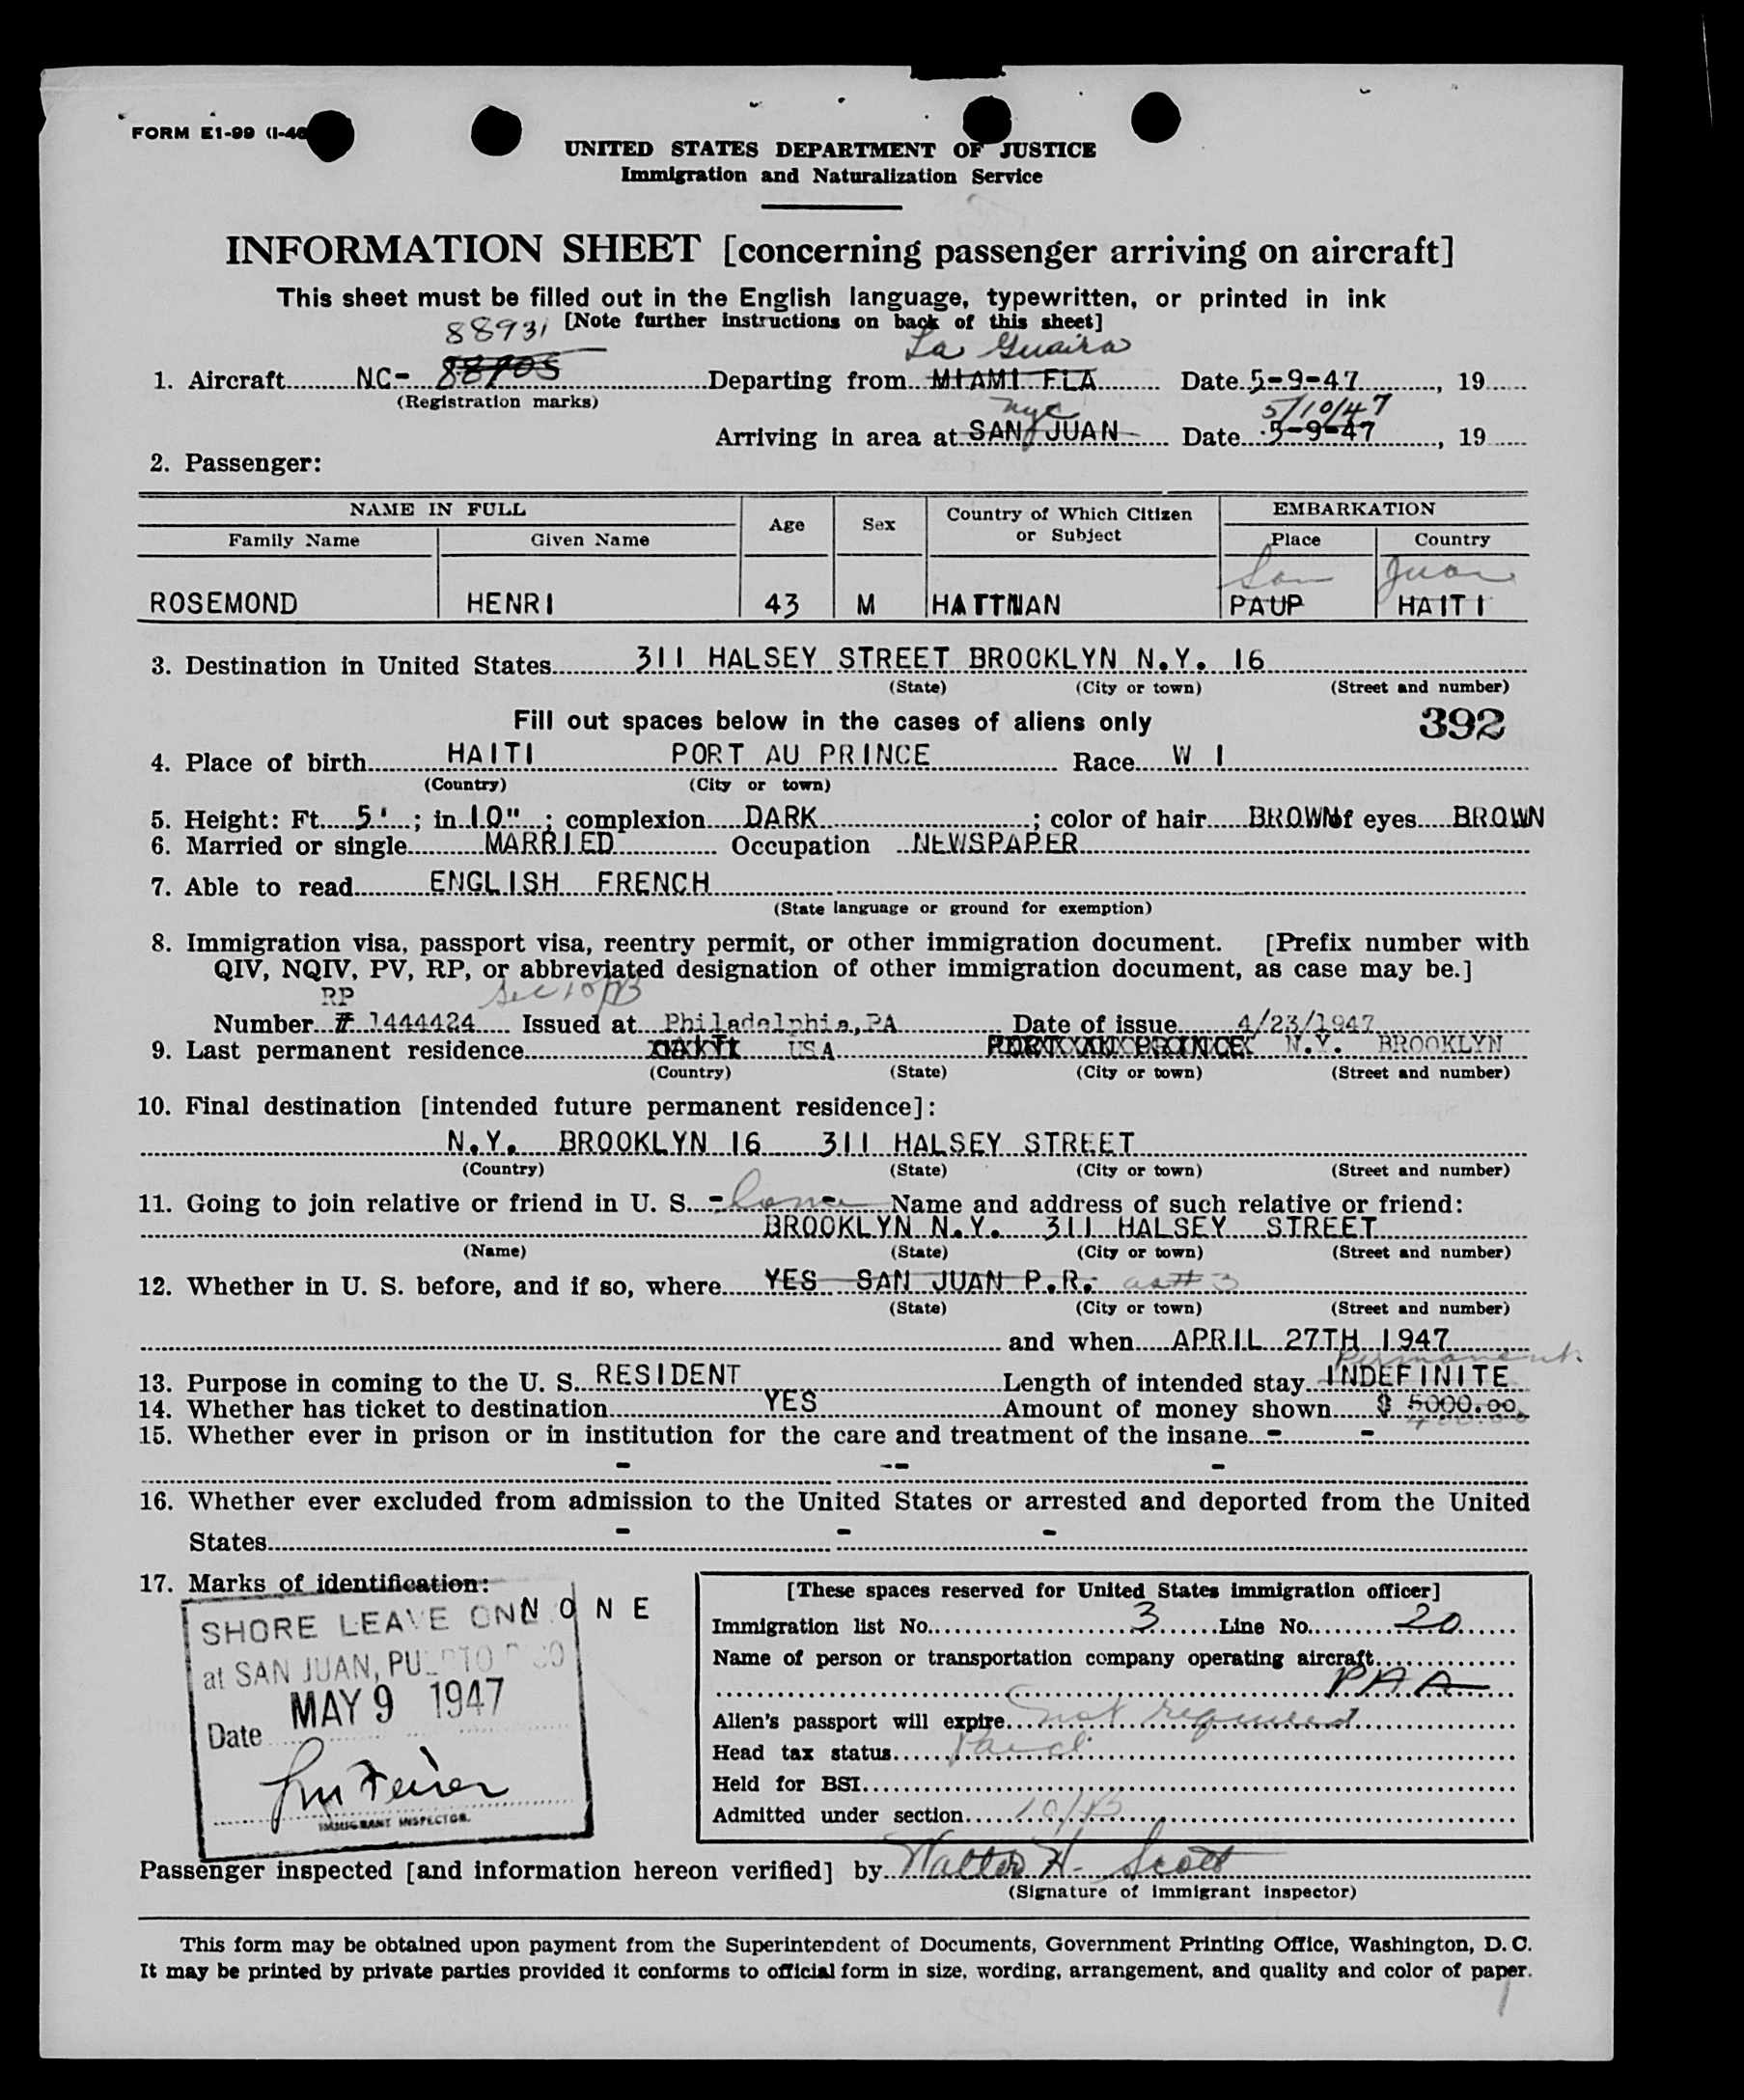 FORM E1-99 (1-46
UNITED STATES DEPARTMENT OF JUSTICE
Immigration and Naturalization Service
INFORMATION SHEET [concerning passenger arriving on aircraft]
This sheet must be filled out in the English language, typewritten, or printed in ink
[Note further instructions on back of this sheet]
88931
La Guaira
1. Aircraft NC- 88905 Departing from MIAMI FLA Date 5-9-47, 19
(Registration marks)
nyc 5/10/47
Arriving in area at SAN JUAN Date 5-9-47, 19
2. Passenger:
NAME IN FULL Age Sex Country of Which Citizen or Subject EMBARKATION
Family Name Given Name Place Country
San Juan
ROSEMOND HENRI 43 M HATTNAN PAUP HAITI
3. Destination in United States 311 HALSEY STREET BROOKLYN N.Y. 16
(State) (City or town) (Street and number)
Fill out spaces below in the cases of aliens only 392
4. Place of birth HAITI PORT AU PRINCE Race W I
(Country) (City or town)
5. Height: Ft. 5'; in. 10"; complexion DARK; color of hair BROWN of eyes BROWN
6. Married or single MARRIED Occupation NEWSPAPER
7. Able to read ENGLISH FRENCH
(State language or ground for exemption)
8. Immigration visa, passport visa, reentry permit, or other immigration document. [Prefix number with
QIV, NQIV, PV, RP, or abbreviated designation of other immigration document, as case may be.]
RP Sec 10/B
Number # 1444424 Issued at Philadelphia, PA Date of issue 4/23/1947
9. Last permanent residence HAITI USA PORT AU PRINCE N.Y. BROOKLYN
(Country) (State) (City or town) (Street and number)
10. Final destination [intended future permanent residence]:
N.Y. BROOKLYN 16 311 HALSEY STREET
(Country) (State) (City or town) (Street and number)
11. Going to join relative or friend in U. S. - home - Name and address of such relative or friend:
BROOKLYN N.Y. 311 HALSEY STREET
(Name) (State) (City or town) (Street and number)
12. Whether in U. S. before, and if so, where YES SAN JUAN P.R. as # 3
(State) (City or town) (Street and number)
and when APRIL 27TH 1947
Permanent
13. Purpose in coming to the U. S. RESIDENT Length of intended stay INDEFINITE
14. Whether has ticket to destination YES Amount of money shown $ 5000.00
15. Whether ever in prison or in institution for the care and treatment of the insane - -
- -- -
16. Whether ever excluded from admission to the United States or arrested and deported from the United
States - - -
17. Marks of identification:
N O N E
SHORE LEAVE ONL
at SAN JUAN, PUERTO RICO
MAY 9 1947
Date
IMMIGRANT INSPECTOR.
[These spaces reserved for United States immigration officer]
Immigration list No. 3 Line No. 20
Name of person or transportation company operating aircraft
PAA
Alien's passport will expire not required
Head tax status Paid
Held for BSI
Admitted under section 10/B
Passenger inspected [and information hereon verified] by Walter H. Scott
(Signature of immigrant inspector)
This form may be obtained upon payment from the Superintendent of Documents, Government Printing Office, Washington, D. C.
It may be printed by private parties provided it conforms to official form in size, wording, arrangement, and quality and color of paper.